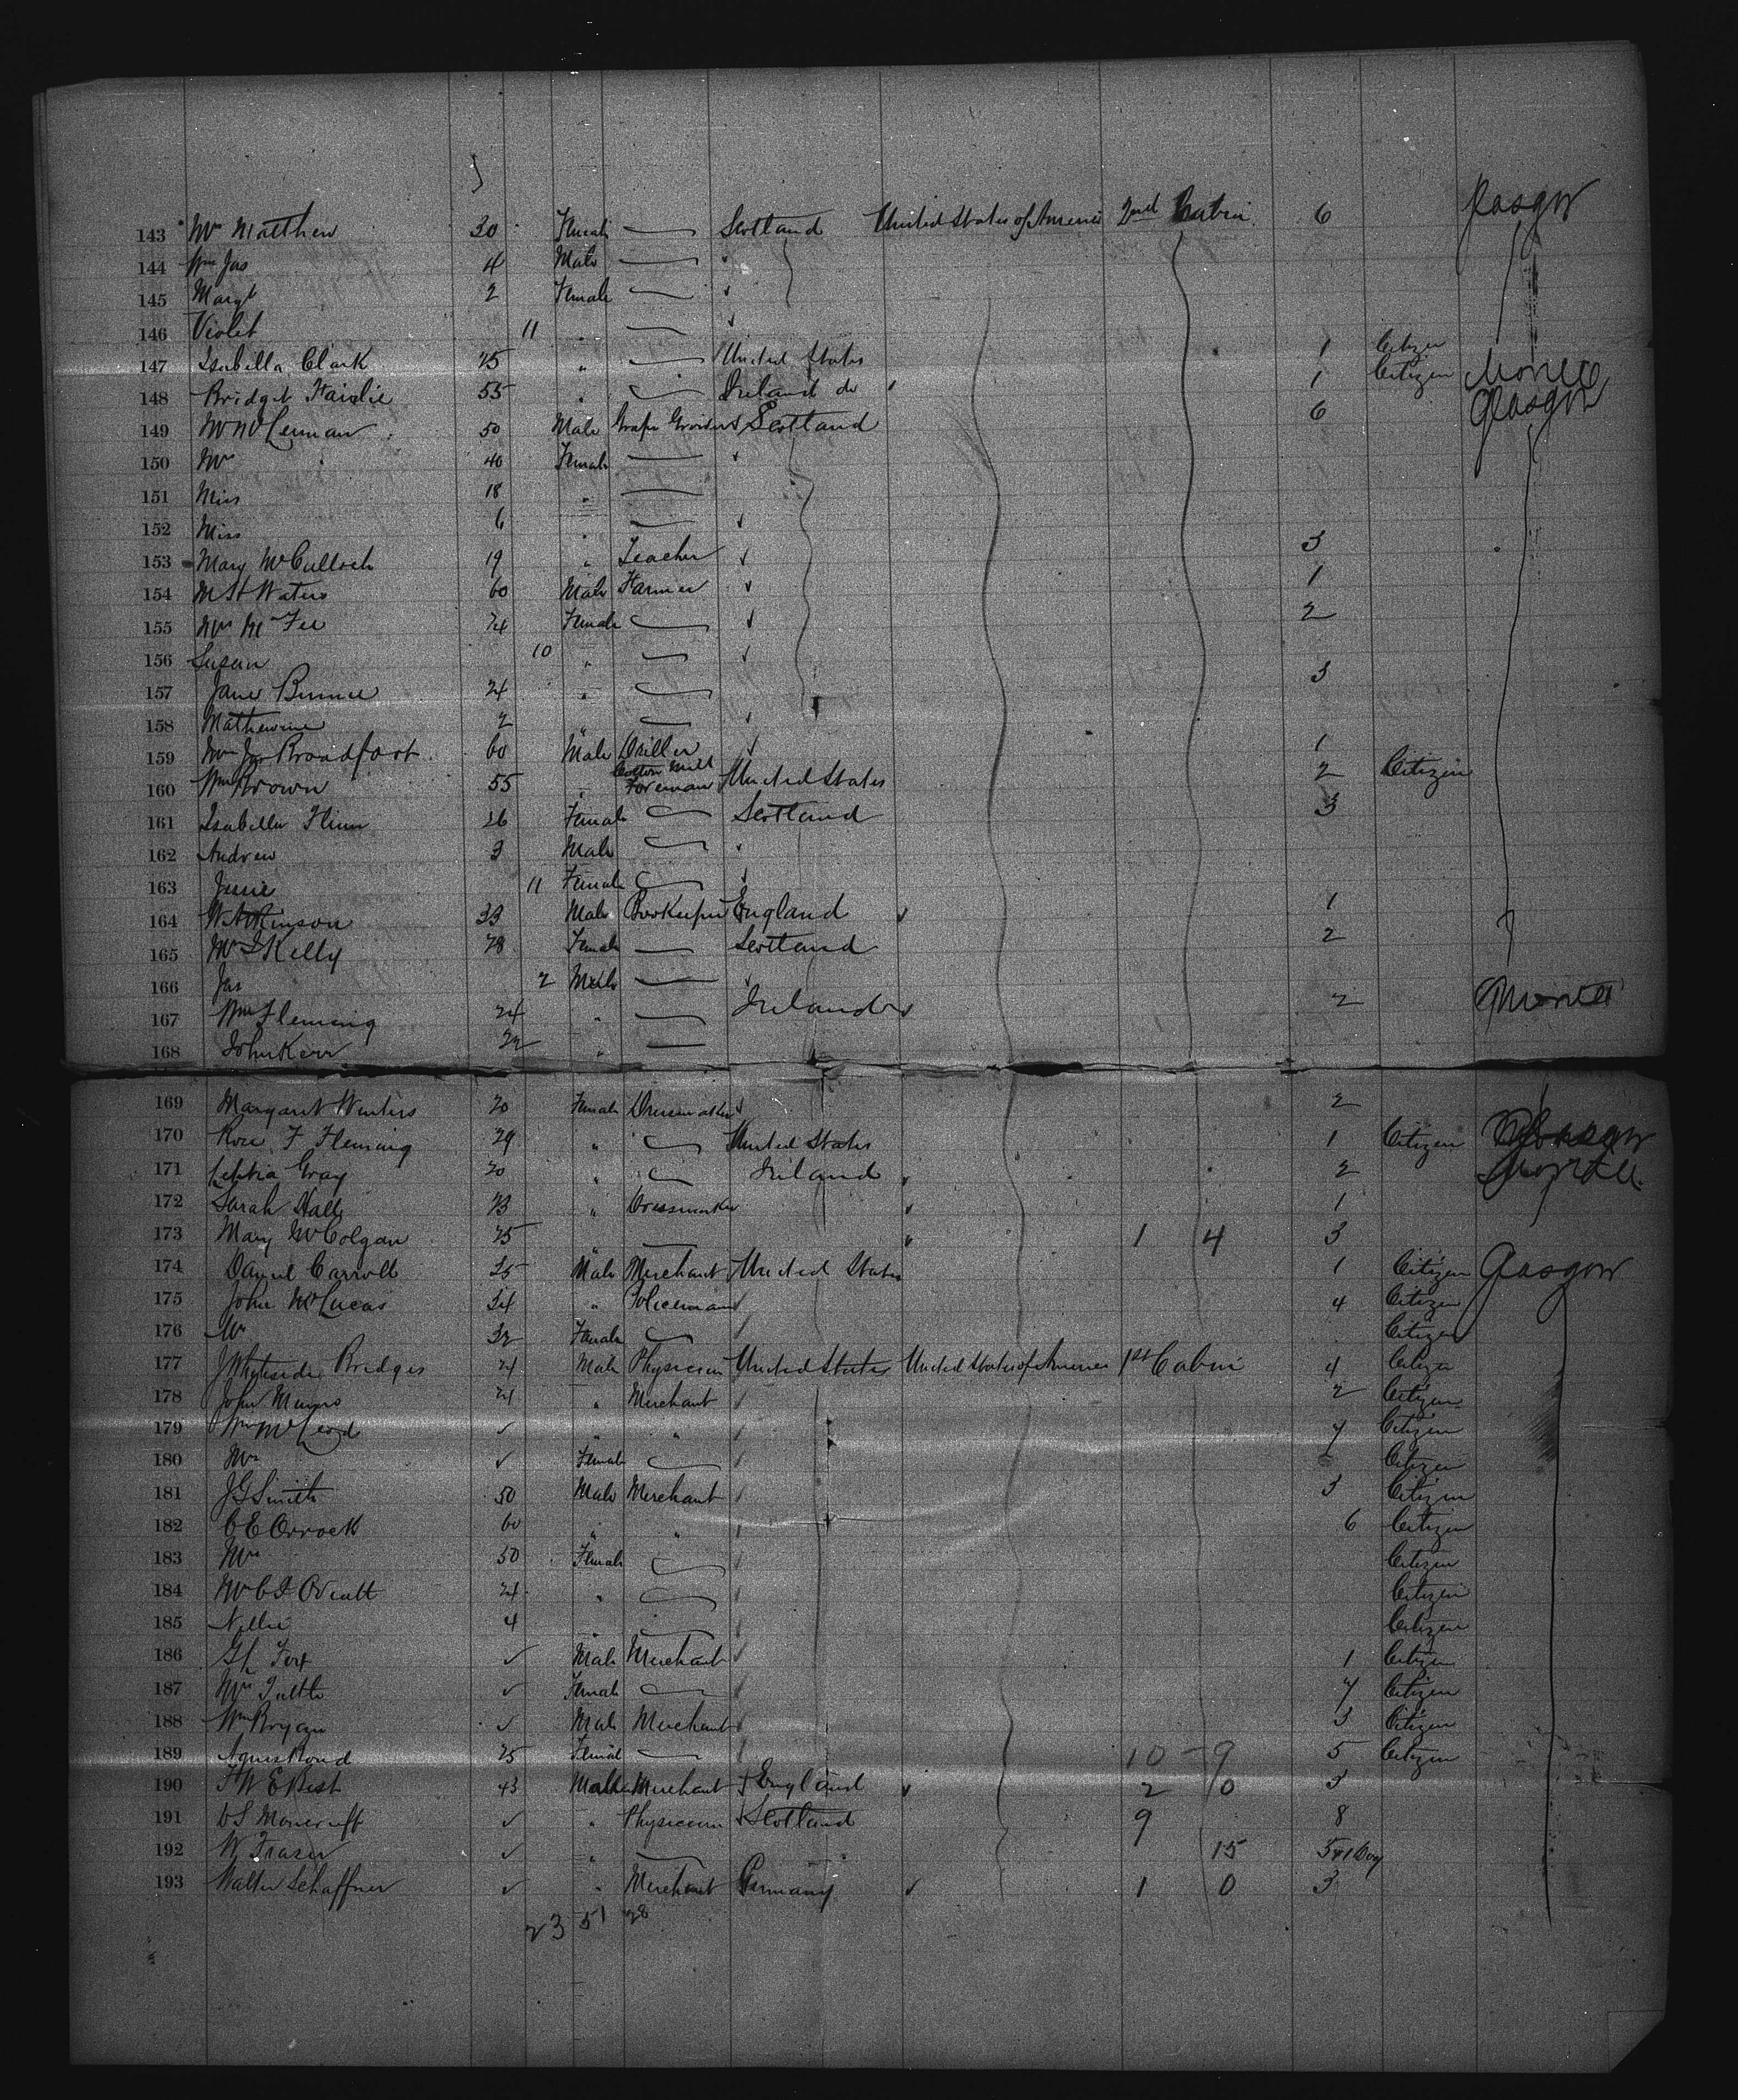 143 Mrs Matthew 30 Female Scotland United States of America 2nd Cabin 6 Glasgow
144 Wm Jas 4 Male "
145 Margt 2 Female "
146 Violet 11 " "
147 Isabella Clark 25 " United States 1 Citizen
148 Bridget Fairlie 55 " Ireland do 1 Citizen Moville
149 Mr McLennan 50 Male Grape Grower Scotland 6 Glasgow
150 Mrs 40 Female "
151 Miss 18 "
152 Miss 6 " "
153 Mary McCulloch 19 " Teacher " 3
154 Waters 60 Male Farmer " 1
155 Mrs McFee 24 Female " 2
156 Susan 10 " "
157 Jane Binnie 24 " 3
158 2 " "
159 Broadfoot 60 Male " 1
160 Wm Brown 55 " Cotton Mill Foreman United States 2 Citizen
161 Isabella Flinn 26 Female Scotland 3
162 Andrew 3 Male "
163 Jessie 11 Female "
164 W Atkinson 33 Male Bookeeper England 1
165 Mrs Kelly 28 Female Scotland 2
166 Jas 2 Male "
167 Wm Fleming 24 " Ireland 2 Moville
168 John Kerr 22 "
169 Margaret Winters 20 Female Dressmaker " 2
170 Rose F Fleming 29 " United States 1 Citizen Glasgow
171 Letitia Gray 20 " Ireland 2 Moville
172 Sarah Hall 23 " Dressmaker 1
173 Mary McColgan 25 " 1 4 3
174 Daniel Carroll 35 Male Merchant United States 1 Citizen Glasgow
175 John McLucas 34 " Policeman 4 Citizen
176 Mrs 32 Female Citizen
177 J Whyteside Bridges 24 Male Physician United States United States of America 1st Cabin 4 Citizen
178 John Munro 24 " Merchant 2 Citizen
179 Wm McLeod " " 7 Citizen
180 Mrs Female Citizen
181 J G Smith 50 Male Merchant 3 Citizen
182 C E Orrock 60 " " 6 Citizen
183 Mrs 50 Female Citizen
184 Mrs C I Oviatt 24 " Citizen
185 Nellie 4 " Citizen
186 Male Merchant 1 Citizen
187 Mrs Tuttle Female 7 Citizen
188 Wm Bryan Male Merchant 3 Citizen
189 Agnes Bond 25 Female 10 9 5 Citizen
190 F W E Best 43 Male Merchant England 2 0 3
191 Moncrieff " Physician Scotland 9 8
192 W Fraser " 15 5 & 1 Dog
193 Walter Schaffner " Merchant Germany 1 0 3
23 51 28